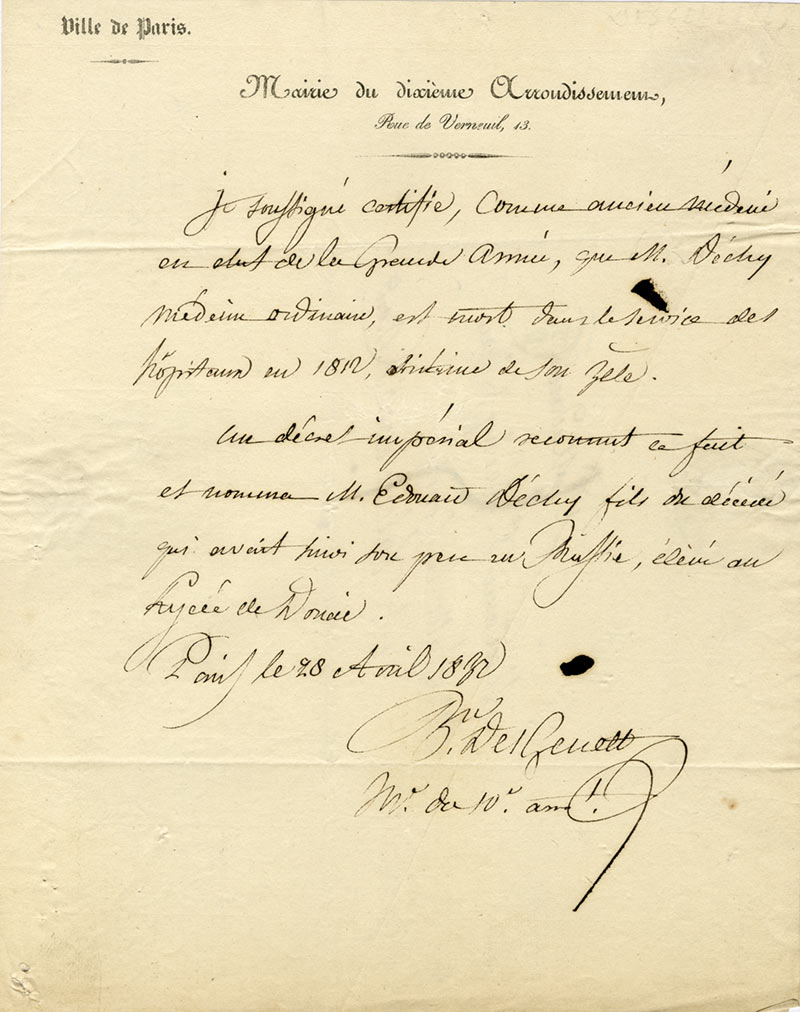 Ville de Paris.
Mairie du dixième Arrondissement,
Rue de Verneuil, 13.
je soussigné certifie, comme ancien médecin
en chef de la Grande Armée, que M. Déchy
médecin ordinaire, est mort dans le service des
hôpitaux en 1812, victime de son zèle.
Un décret impérial reconnut ce fait
et nomma M. Edouard Déchy fils du décédé
qui avait suivi son père en Russie, élève au
Lycée de Douai.
Paris le 28 Avril 1832
Bon. DesGenettes
M. du 10e. arrt.